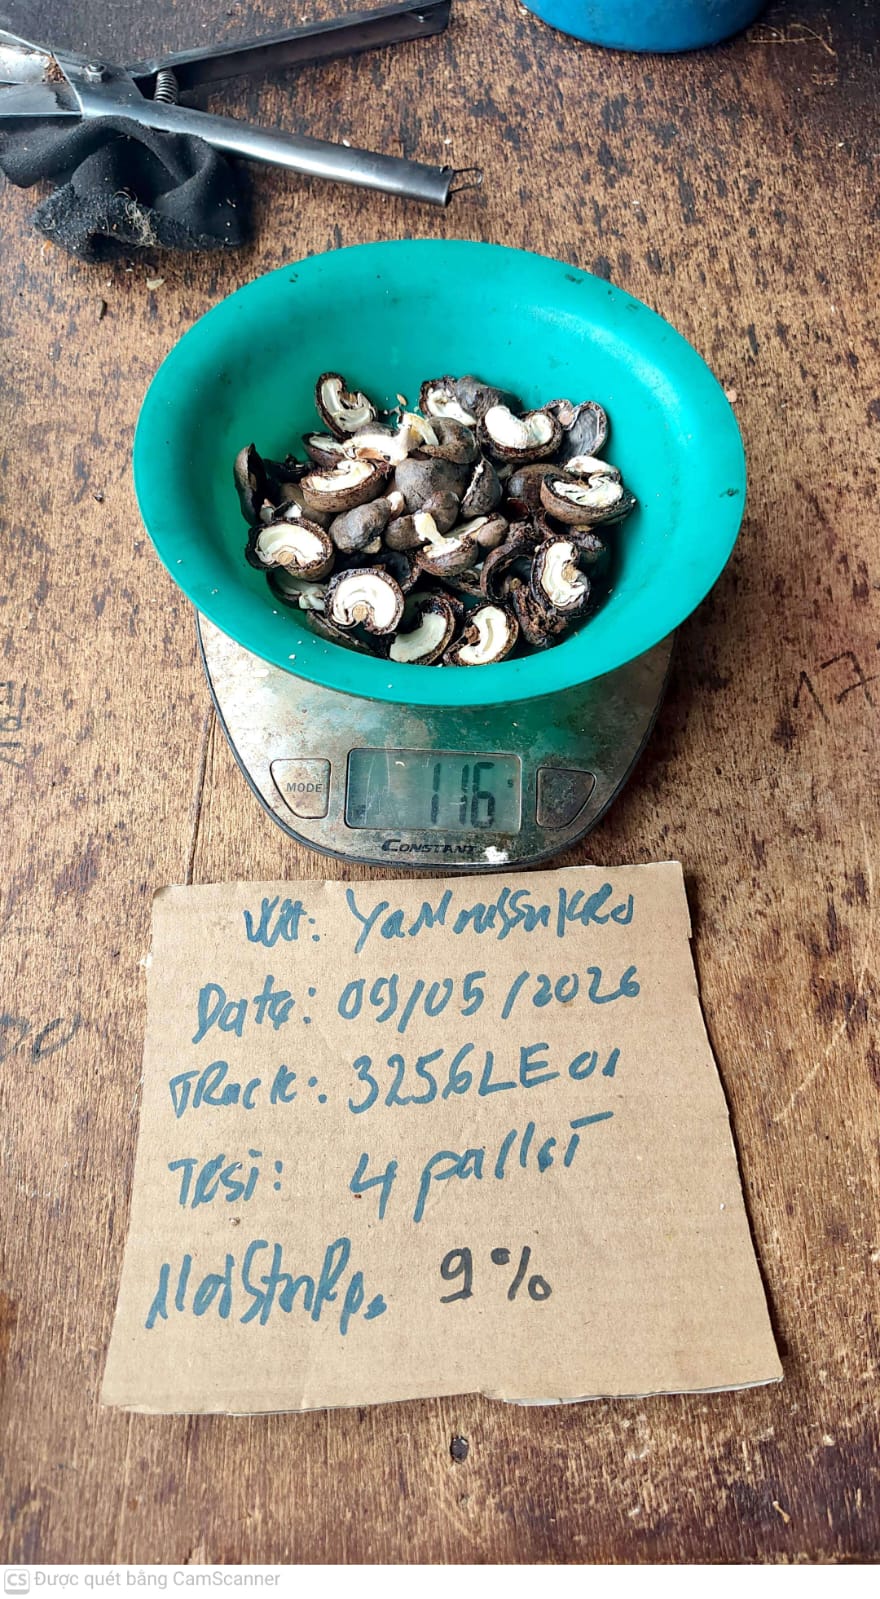 MODE
116 g
CONSTANT
WH: YaMoussuKRo
Date: 09/05/2026
TRack: 3256LE01
Test: 4 palleT
MoiStuRe 9%
CS Được quét bằng CamScanner